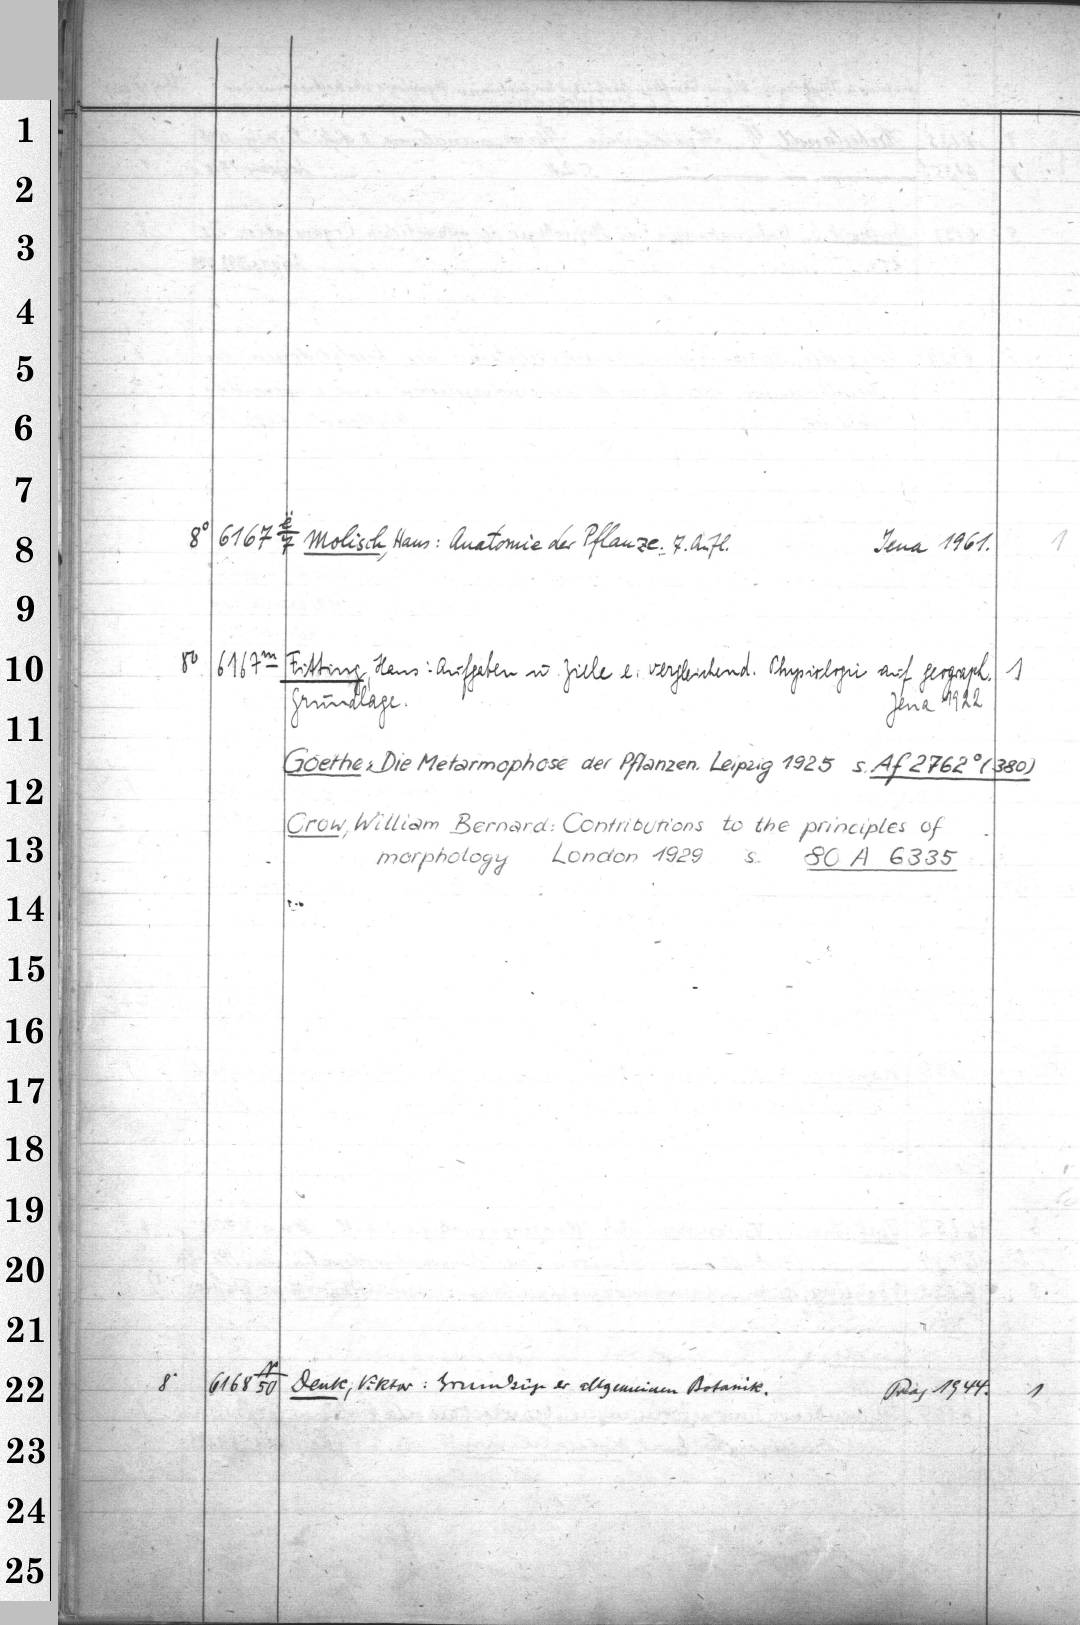 1
2
3
4
5
6
7
8
8° 6167 ë/7 Molisch, Hans: Anatomie der Pflanze. 7. Aufl. Jena 1961. 1
9
10
8° 6167 m Fitting, Hans: Aufgaben u. Ziele e. vergleichend. Physiologie auf geograph. 1
Grundlage. Jena 1922
11
Goethe: Die Metarmophose der Pflanzen. Leipzig 1925 s. Af 2762° (380)
12
Crow, William Bernard: Contributions to the principles of
13
morphology London 1929 s. 80 A 6335
14
15
16
17
18
19
20
21
22
8° 6168 /50 Denk, Viktor: Grundzüge der allgemeinen Botanik. Prag 1944. 1
23
24
25